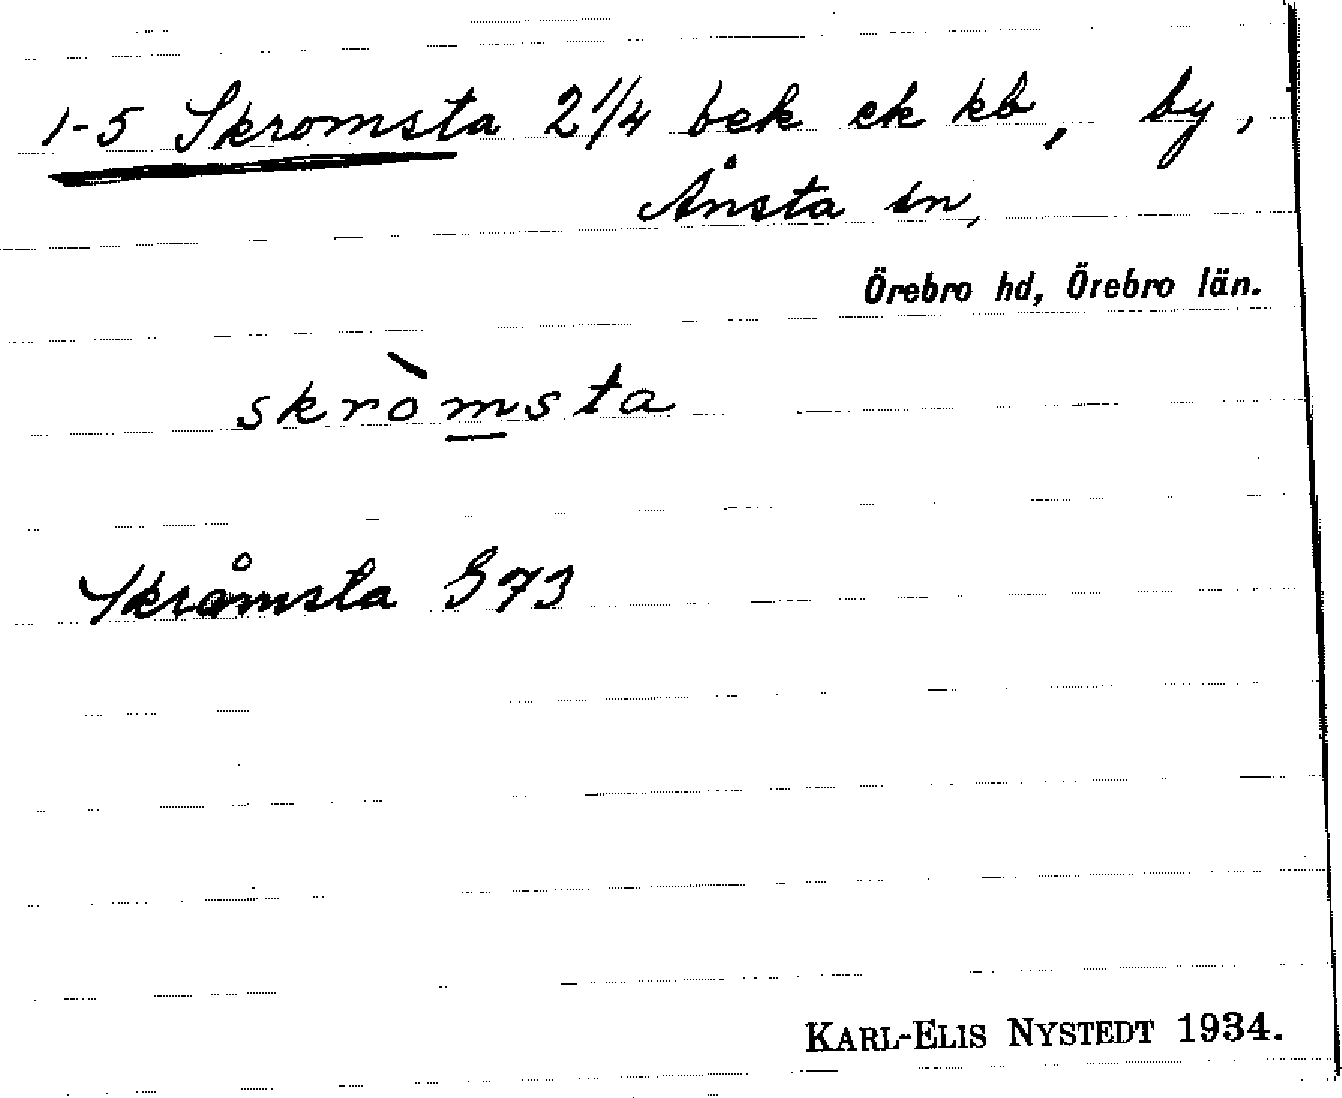 1-5 Skromsta 2 1/4 bek ek kb, by,
Ånsta sn,
Örebro hd, Örebro län.
skròmsta
Skråmsta G 73
KARL-ELIS NYSTEDT 1934.